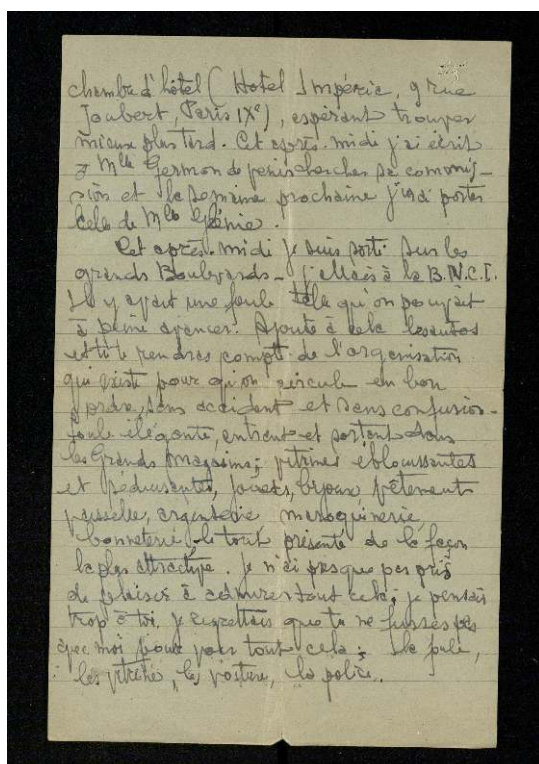 chambre d'hôtel (Hotel Impéria, 9 rue
Joubert, Paris IXe), espérant trouver
mieux plus tard. Cet après-midi j'ai écrit
à Mlle Germon de venir chercher sa commis-
sion et la semaine prochaine j'irai porter
celle de Mlle Génie.
Cet après-midi je suis sorti sur les
grands Boulevards - j'allais à la B.N.C.I.
Il y avait une foule telle qu'on pouvait
à peine avancer. Ajoute à cela les autos
et tu te rendras compte de l'organisation
qui existe pour qu'on circule en bon
ordre, sans accident et sans confusion -
foule élégante, entrant et sortant dans
les Grands Magasins; vitrines éblouissantes
et séduisantes, jouets, bijoux, vêtements
vaisselle, argenterie, maroquinerie,
bonneterie le tout présenté de la façon
la plus attractive. Je n'ai presque pas pris
de plaisir à admirer tout cela; je pensais
trop à toi, je regrettais que tu ne fusses pas
avec moi pour voir tout cela: la foule,
les vitrines, les voitures, la police.